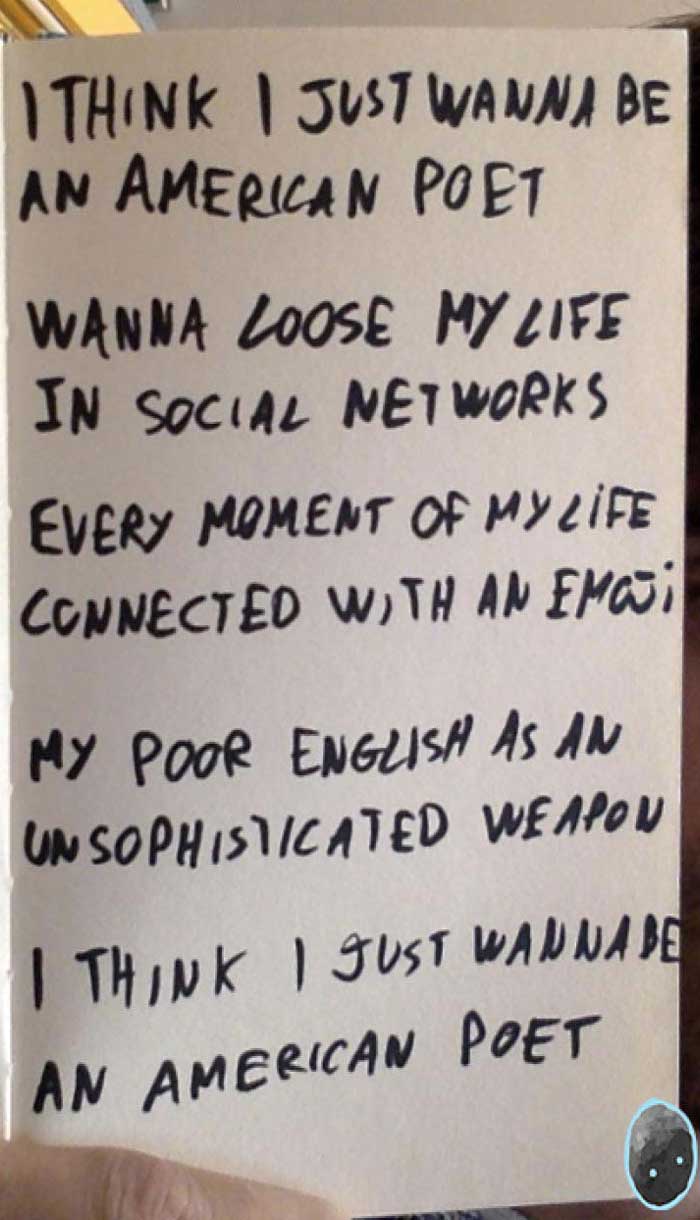 I THINK I JUST WANNA BE
AN AMERICAN POET
WANNA LOOSE MY LIFE
IN SOCIAL NETWORKS
EVERY MOMENT OF MY LIFE
CONNECTED WITH AN EMOJI
MY POOR ENGLISH AS AN
UNSOPHISTICATED WEAPON
I THINK I JUST WANNA BE
AN AMERICAN POET